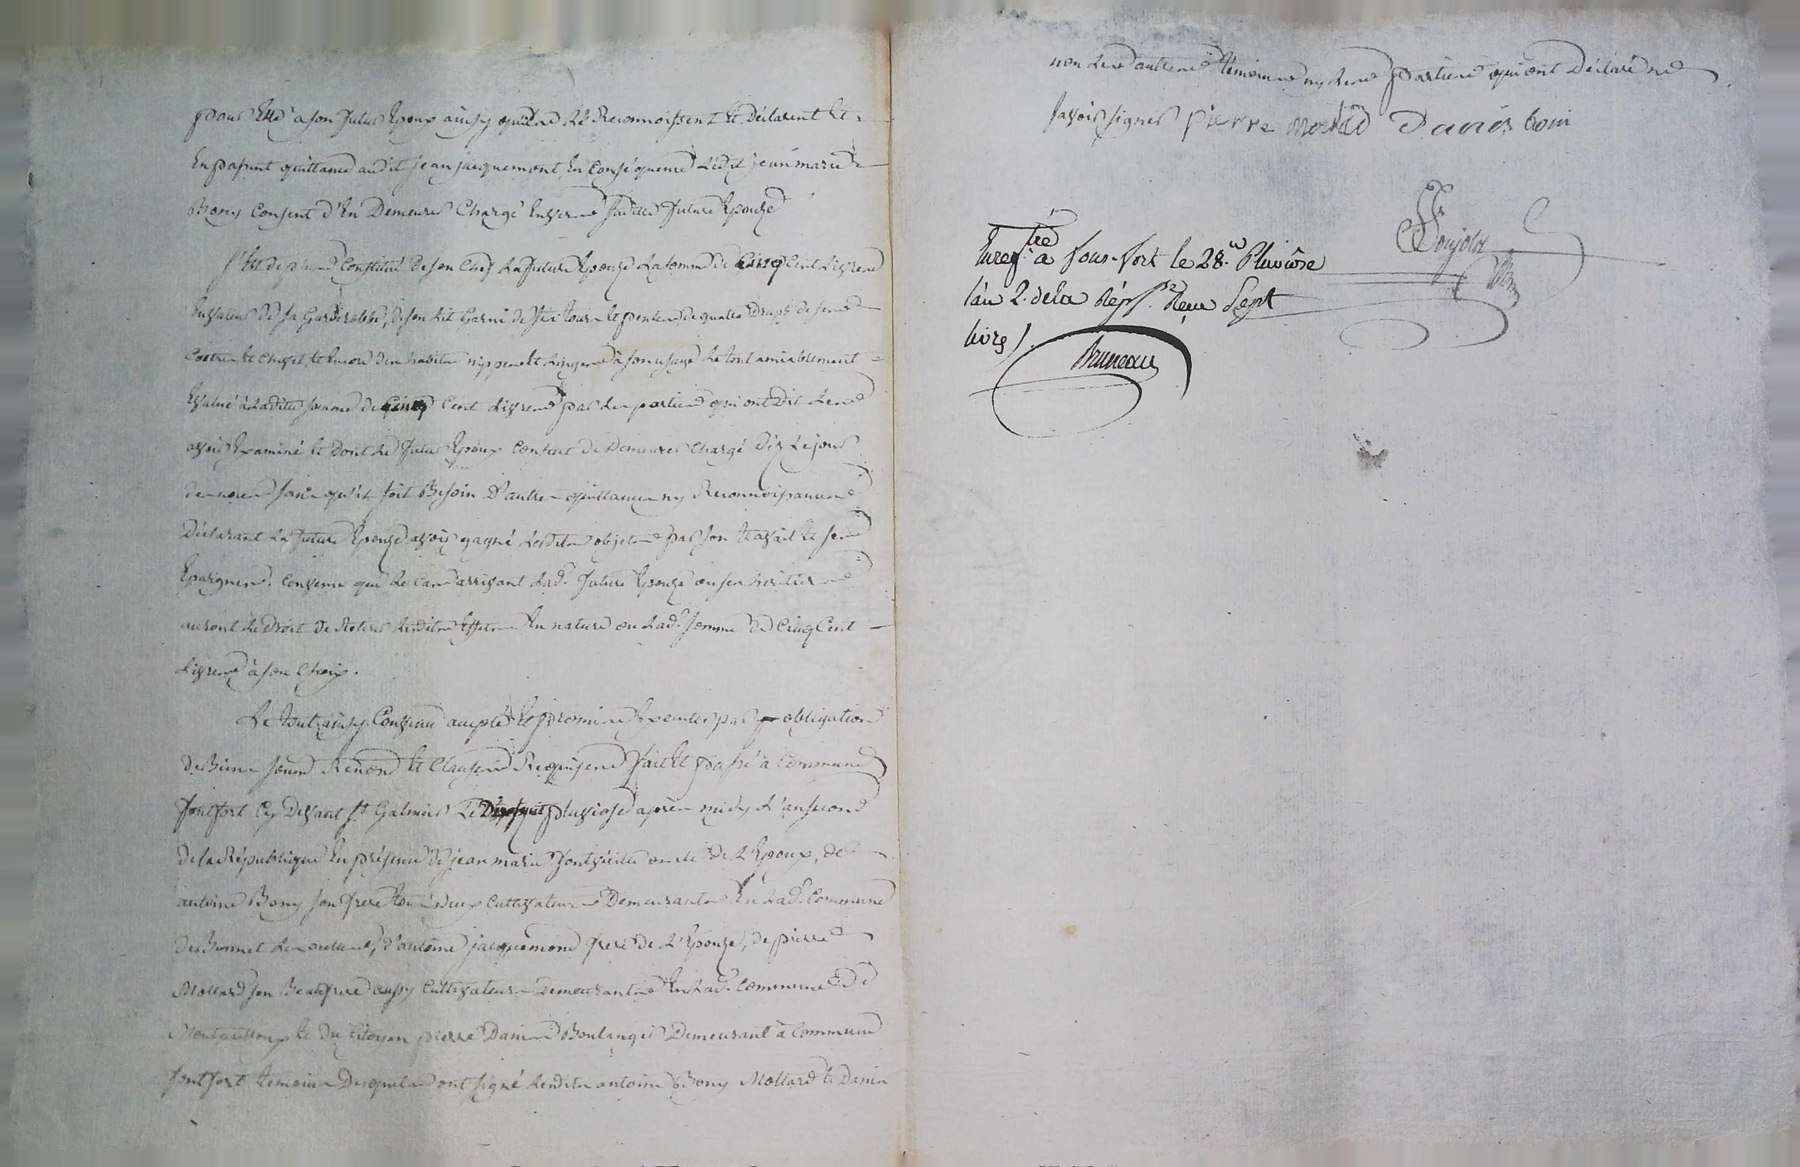 pour Elle a son futur Epoux ainsy qu'elle Le Reconnoissent Et déclarent Et
En passent quittance audit jean jacquemont En Conséquence Ledit jean marie
Bony Consent d'En Demeurer Chargé Envers sadite future Epouze
S'Est de plus Constitué de son Chef La future Epouze La somme de Cinq Cent Livres
En Valeur de sa Garderobbe, de son Lit Garni de Ses tours de quatre Draps de
Coffre Et Encore d'en habits nippes Et Linges à son usage Le tout amiablement
Evalué à Ladite somme de Cinq Cent Livres par Les parties qui ont Dit Les
avoir Examiné Et Dont Le futur Epoux Consent de Demeurer Chargé Dès Le jour
de noces sans qu'il soit Besoin D'autre quittance ny Reconnoissance
Déclarant La future Epouze avoir gagné Lesdits objets par son travail Et ses
Epargnes. Convenu que Le Cas arrivant Lad. future Epouze ou ses héritiers
auront Le Droit de Retirer Lesdits Effets En nature ou Lad. somme de Cinq Cent
Livres à son Choix.
Le tout ainsy Convenu accepté Et promis Executer par obligation
de Biens soumis Renon Et Clauses Requises fait Et passé à Commune
fontfort Cy Devant St Galmier Le Dixhuit pluviose après midy L'an second
de la République En présence de jean marie fontvieille oncle de L'Epoux, de
antoine Bony son frere tous deux Cultivateurs Demeurants En Lad. Commune
de Bonnet Les oulles, d'antoine jacquemond frere de L'Epouze, de pierre
Mollard son Beaufrere aussy Cultivateurs Demeurants En Lad. Commune de
Et du Citoyen pierre Danier Boulanger Demeurant à Commune
fontfort temoins Desquels ont signé Lesdits antoine Bony Mollard Et Danier
non Les autres temoins ny Les parties qui ont Déclaré ne
savoir signer Pierre Boni
Enregtré à Fons-fort le 28. Pluviôse
l'an 2. de la Rép. Reçu Sept
livres /.
Bruneau